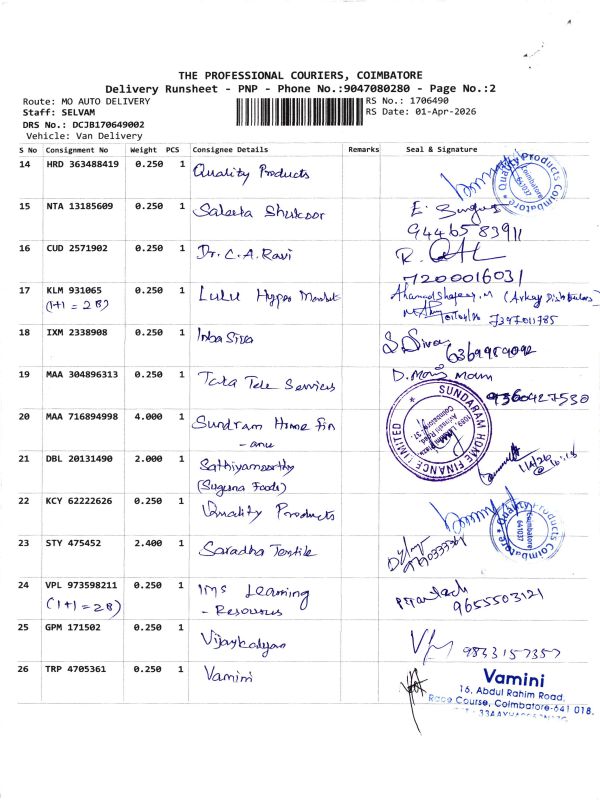 THE PROFESSIONAL COURIERS, COIMBATORE
Delivery Runsheet - PNP - Phone No.:9047080280 - Page No.:2
Route: MO AUTO DELIVERY
RS No.: 1706490
Staff: SELVAM
RS Date: 01-Apr-2026
DRS No.: DCJB170649002
Vehicle: Van Delivery
S No Consignment No Weight PCS Consignee Details Remarks Seal & Signature
14 HRD 363488419 0.250 1 Quality Products
Quality Products Coimbatore 641037
15 NTA 13185609 0.250 1 Saleeta Shukoor
9446583911
16 CUD 2571902 0.250 1 Dr. C.A. Ravi R.
7200016031
17 KLM 931065 0.250 1 Lulu Hyper Market
(1+1 = 2B) 7397011785
18 IXM 2338908 0.250 1 Inba Siva S. Siva 6369989092
19 MAA 304896313 0.250 1 Tata Tele Services D. Moni
9360427530
20 MAA 716894998 4.000 1 Sundram Home Fin
- ance
SUNDARAM HOME FINANCE LIMITED
21 DBL 20131490 2.000 1 Sathiyamoorthy
(Suguna Foods)
22 KCY 62222626 0.250 1 Quality Products
Quality Products Coimbatore 641037
23 STY 475452 2.400 1 Saradha Textile
24 VPL 973598211 0.250 1 IMS Learning
(1+1 = 2B) - Resources 9655503121
25 GPM 171502 0.250 1 Vijaykalyan 9833157357
26 TRP 4705361 0.250 1 Vamini
Vamini
16, Abdul Rahim Road,
Race Course, Coimbatore-641 018.